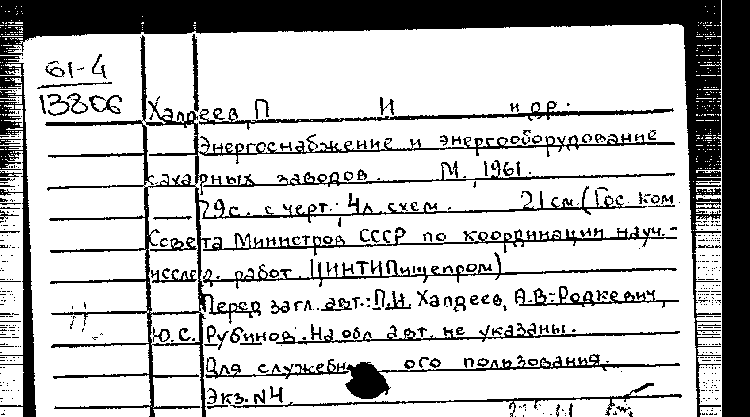 61-4
13806
Халдеев, П И и др.
Энергоснабжение и энергооборудование
сахарных заводов. М., 1961.
79с. с черт.; 4л. схем. 21 см. (Гос. ком.
Совета Министров СССР по координации науч.-
исслед. работ. ЦИНТИПищепром)
Перед загл. авт.: П.И. Халдеев, А.В. Родкевич,
Ю.С. Рубинов. На обл. авт. не указаны.
Для служебного пользования.
Экз. №4